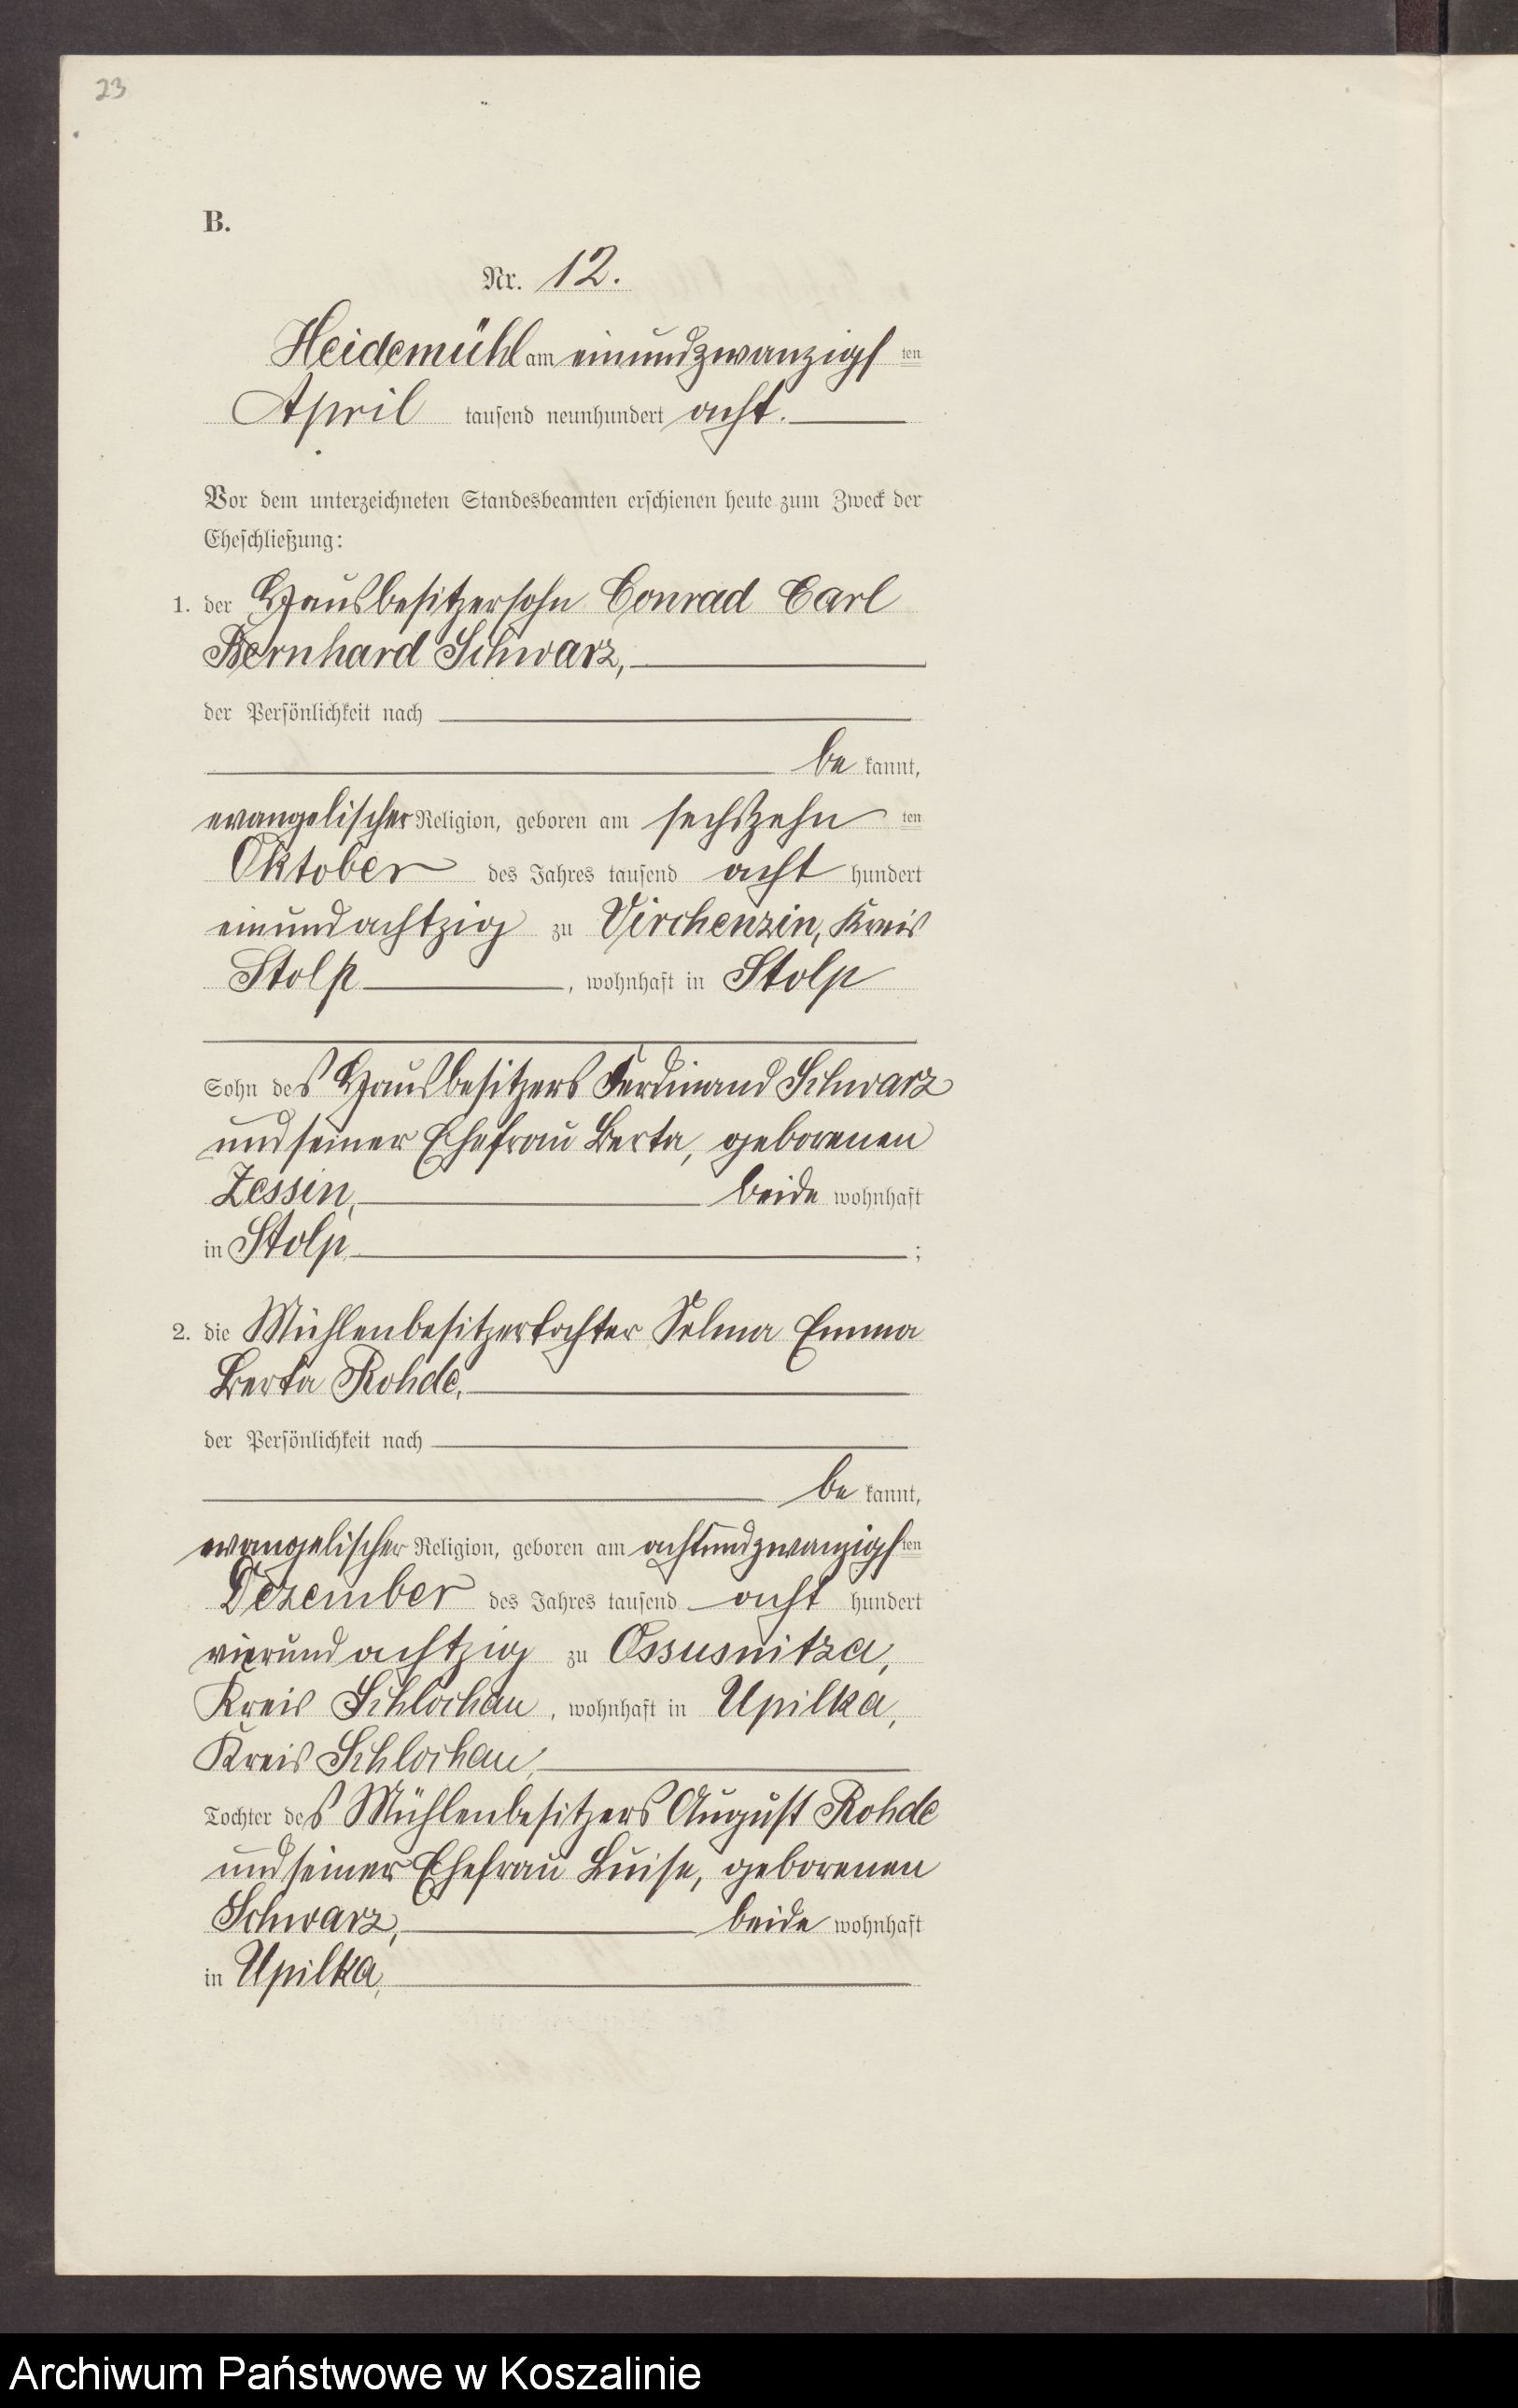 23
B.
Nr. 12.
Heidemühl am einundzwanzigsten
April tausend neunhundert acht.
Vor dem unterzeichneten Standesbeamten erschienen heute zum Zweck der
Eheschließung:
1. der Hausbesitzersohn Conrad Carl
Bernhard Schwarz,
der Persönlichkeit nach
bekannt,
evangelischer Religion, geboren am sechszehnten
Oktober des Jahres tausend acht hundert
einundachtzig zu Virchenzin, Kreis
Stolp, wohnhaft in Stolp
Sohn des Hausbesitzers Ferdinand Schwarz
und seiner Ehefrau Berta, geborenen
Zessin, beide wohnhaft
in Stolp;
2. die Mühlenbesitzertochter Selma Emma
Berta Rohde,
der Persönlichkeit nach
bekannt,
evangelischer Religion, geboren am achtundzwanzigsten
Dezember des Jahres tausend acht hundert
vierundachtzig zu Ossusnitza,
Kreis Schlochau, wohnhaft in Upilka,
Kreis Schlochau,
Tochter des Mühlenbesitzers August Rohde
und seiner Ehefrau Luise, geborenen
Schwarz, beide wohnhaft
in Upilka,
Archiwum Państwowe w Koszalinie